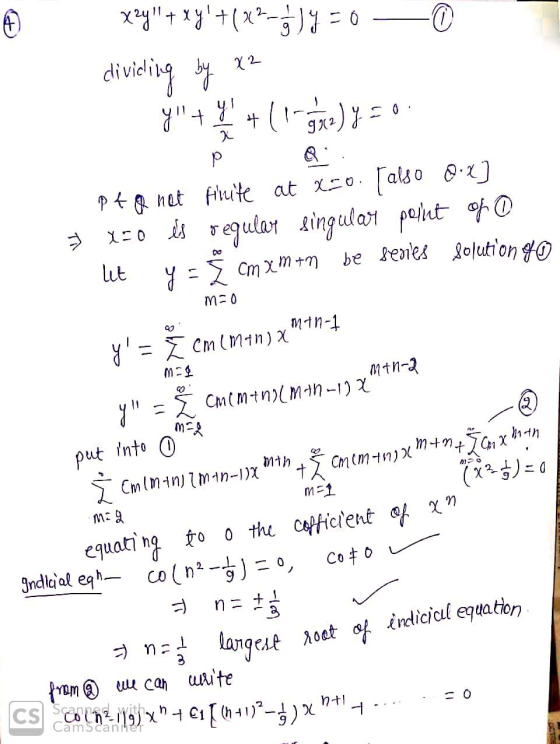 ④ x²y'' + xy' + (x² - 1/9) y = 0 —— ①
dividing by x²
y'' + y'/x + (1 - 1/9x²) y = 0.
P Q.
P & Q not finite at x=0. [also Q·x]
⇒ x=0 is regular singular point of ①
let y = ∑_{m=0}^{∞} cm x^{m+n} be series solution of ①
y' = ∑_{m=1}^{∞} cm (m+n) x^{m+n-1}
y'' = ∑_{m=2}^{∞} cm(m+n)(m+n-1) x^{m+n-2}
put into ① —— ②
∑_{m=2}^{∞} cm(m+n)(m+n-1)x^{m+n} + ∑_{m=1}^{∞} cm(m+n)x^{m+n} + ∑_{m=0}^{∞} cm x^{m+n} (x² - 1/9) = 0
equating to 0 the cofficient of x^n
Indicial eqn— c0(n² - 1/9) = 0, c0 ≠ 0 ✓
⇒ n = ± 1/3 ✓
⇒ n = 1/3 largest root of indicial equation.
from ② we can write
c0(n²-1/9) x^n + c1[(n+1)² - 1/9) x^{n+1} + ...... = 0
CS Scanned with
CamScanner